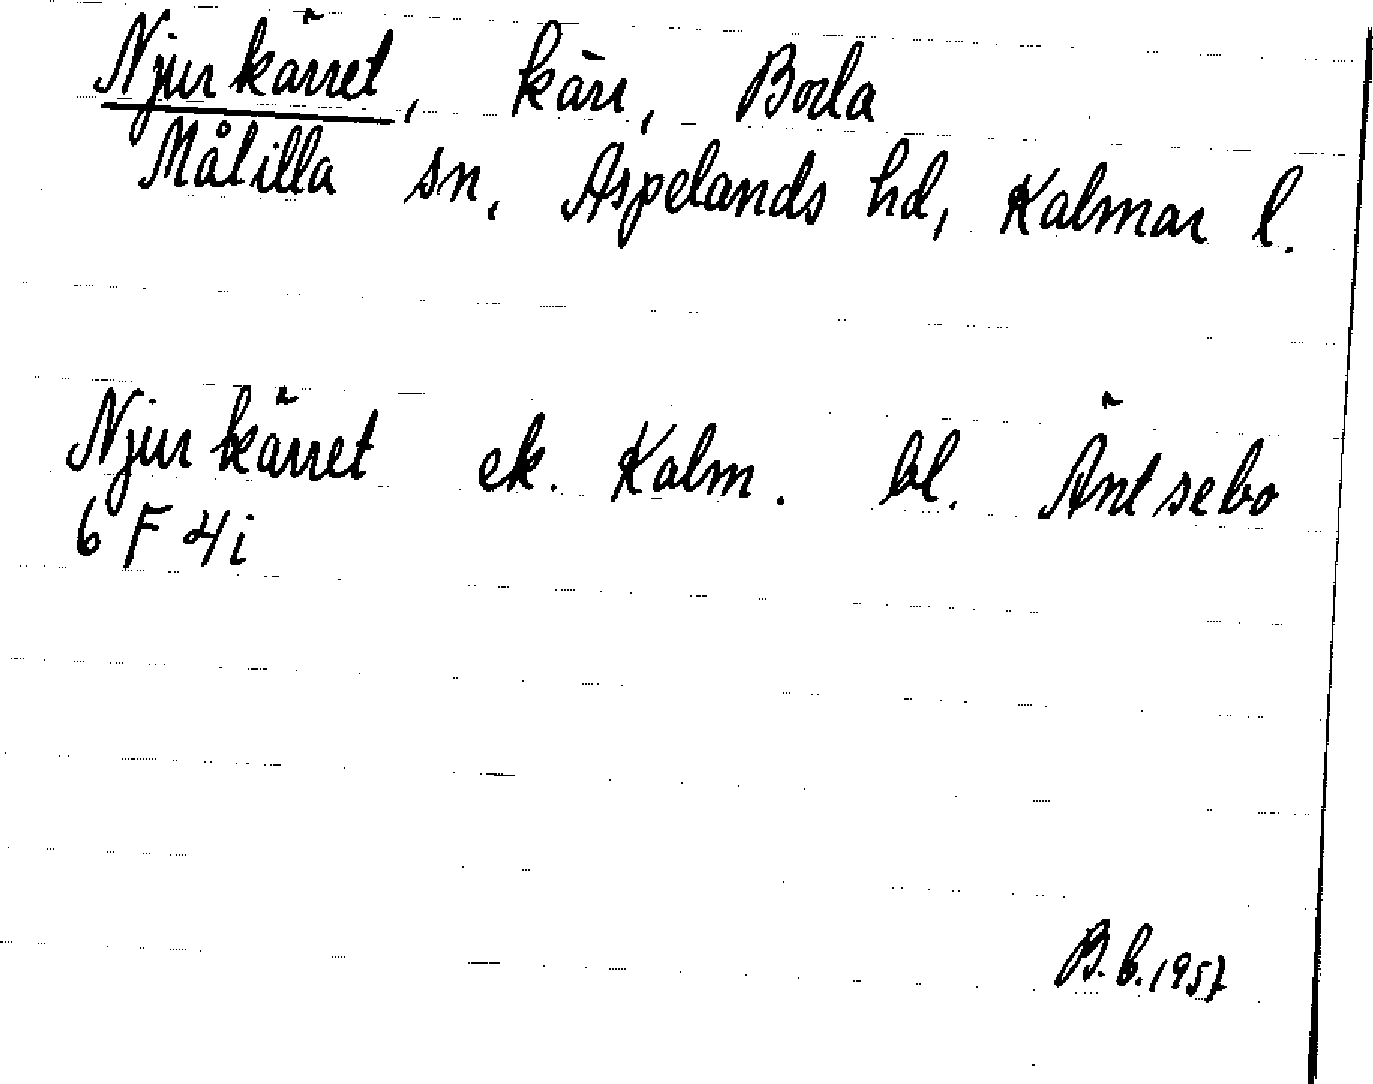 Njurkärret, kärr, Boda
Målilla sn, Aspelands hd, Kalmar l.
Njurkärret ek. Kalm. bl. Äntsebo
6 F 4i
B.b.1957